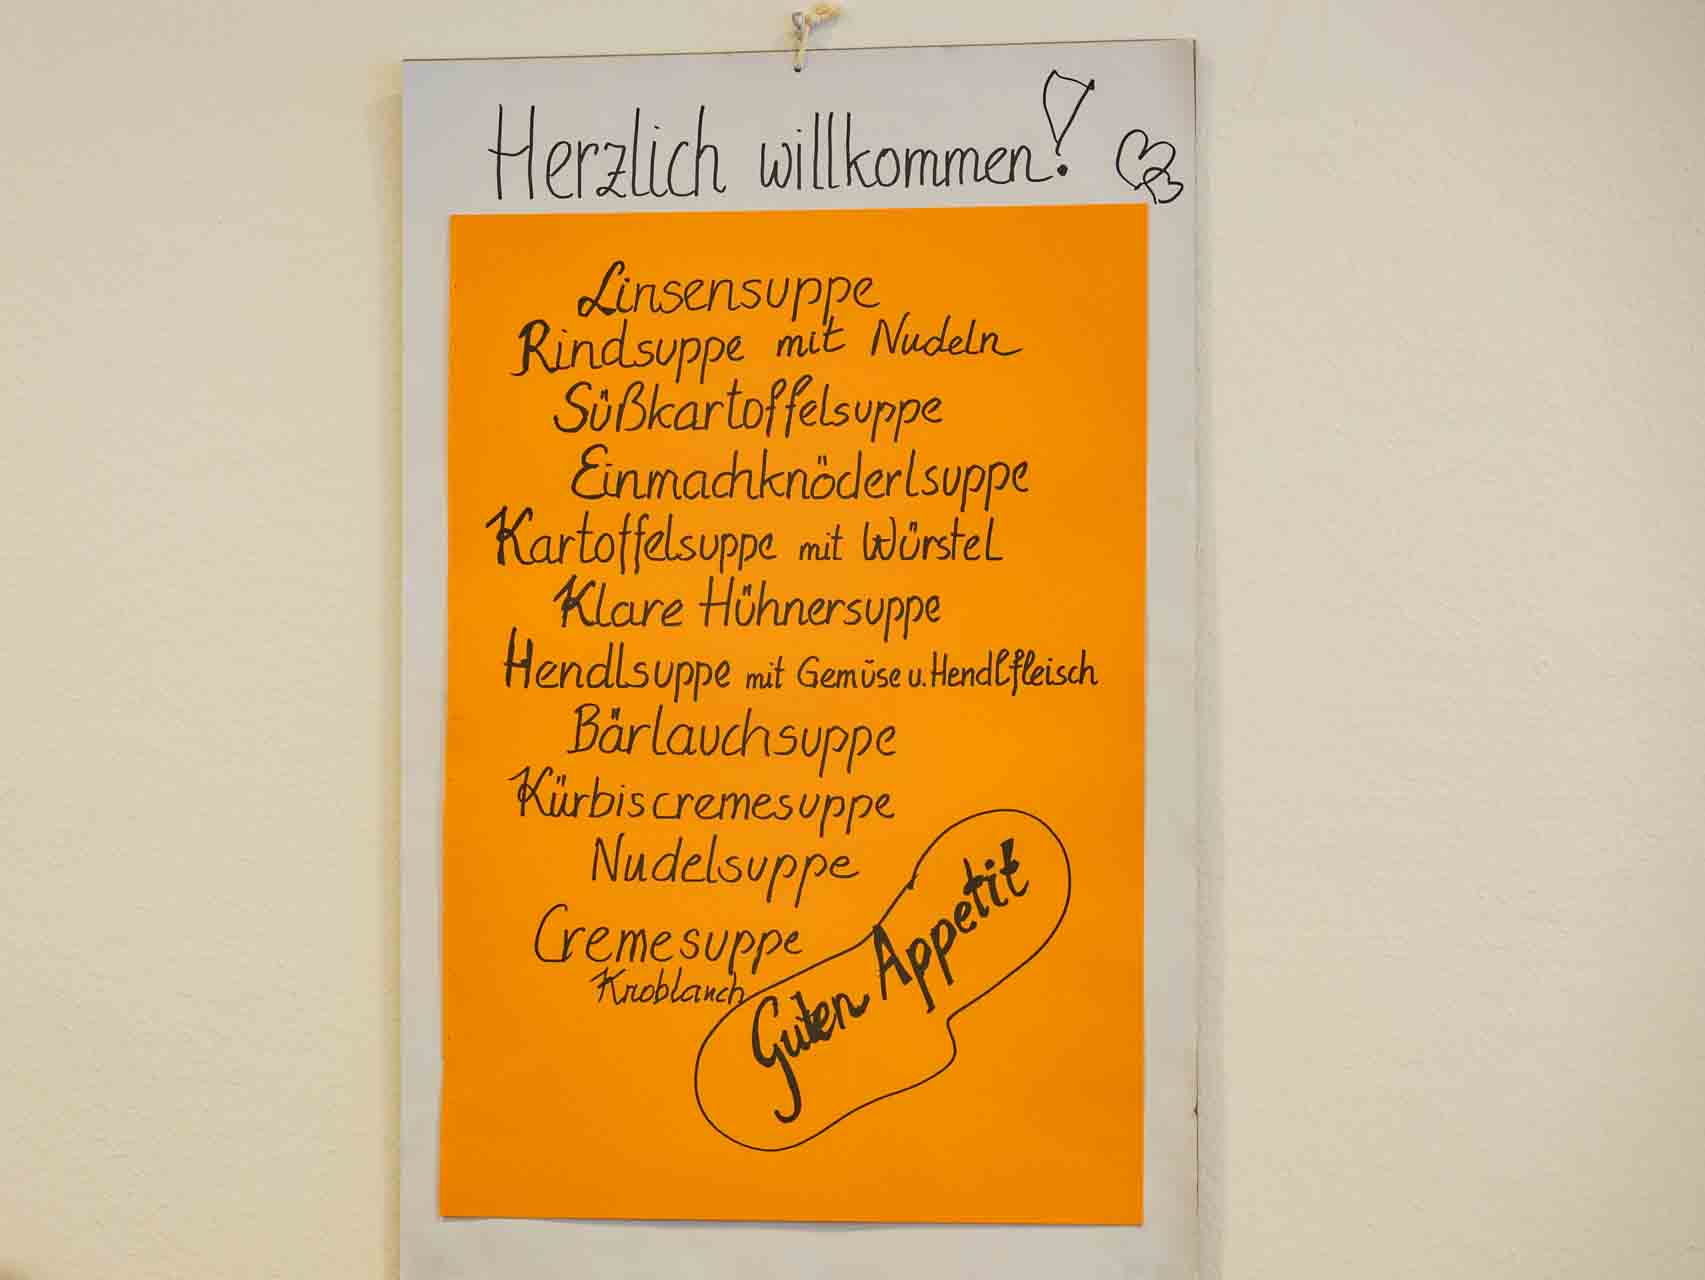 Herzlich willkommen!
Linsensuppe
Rindsuppe mit Nudeln
Süßkartoffelsuppe
Einmachknöderlsuppe
Kartoffelsuppe mit Würstel
Klare Hühnersuppe
Hendlsuppe mit Gemüse u. Hendlfleisch
Bärlauchsuppe
Kürbiscremesuppe
Nudelsuppe
Cremesuppe
Knoblauch
Guten Appetit